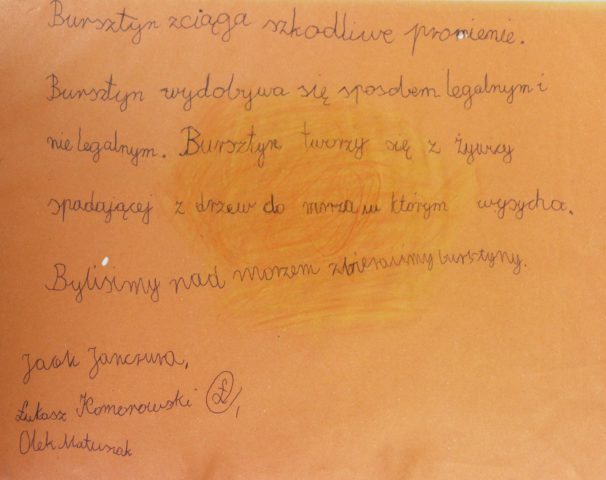 Bursztyn zciąga szkodliwe promienie.
Bursztyn wydobywa się sposobem legalnym i
nie legalnym. Bursztyn tworzy się z żywicy
spadającej z drzew do morza w którym wysycha.
Bylisimy nad morzem zbieralimy bursztyny.
Jacek Janczura,
Łukasz Komorowski Ł,
Olek Matusiak